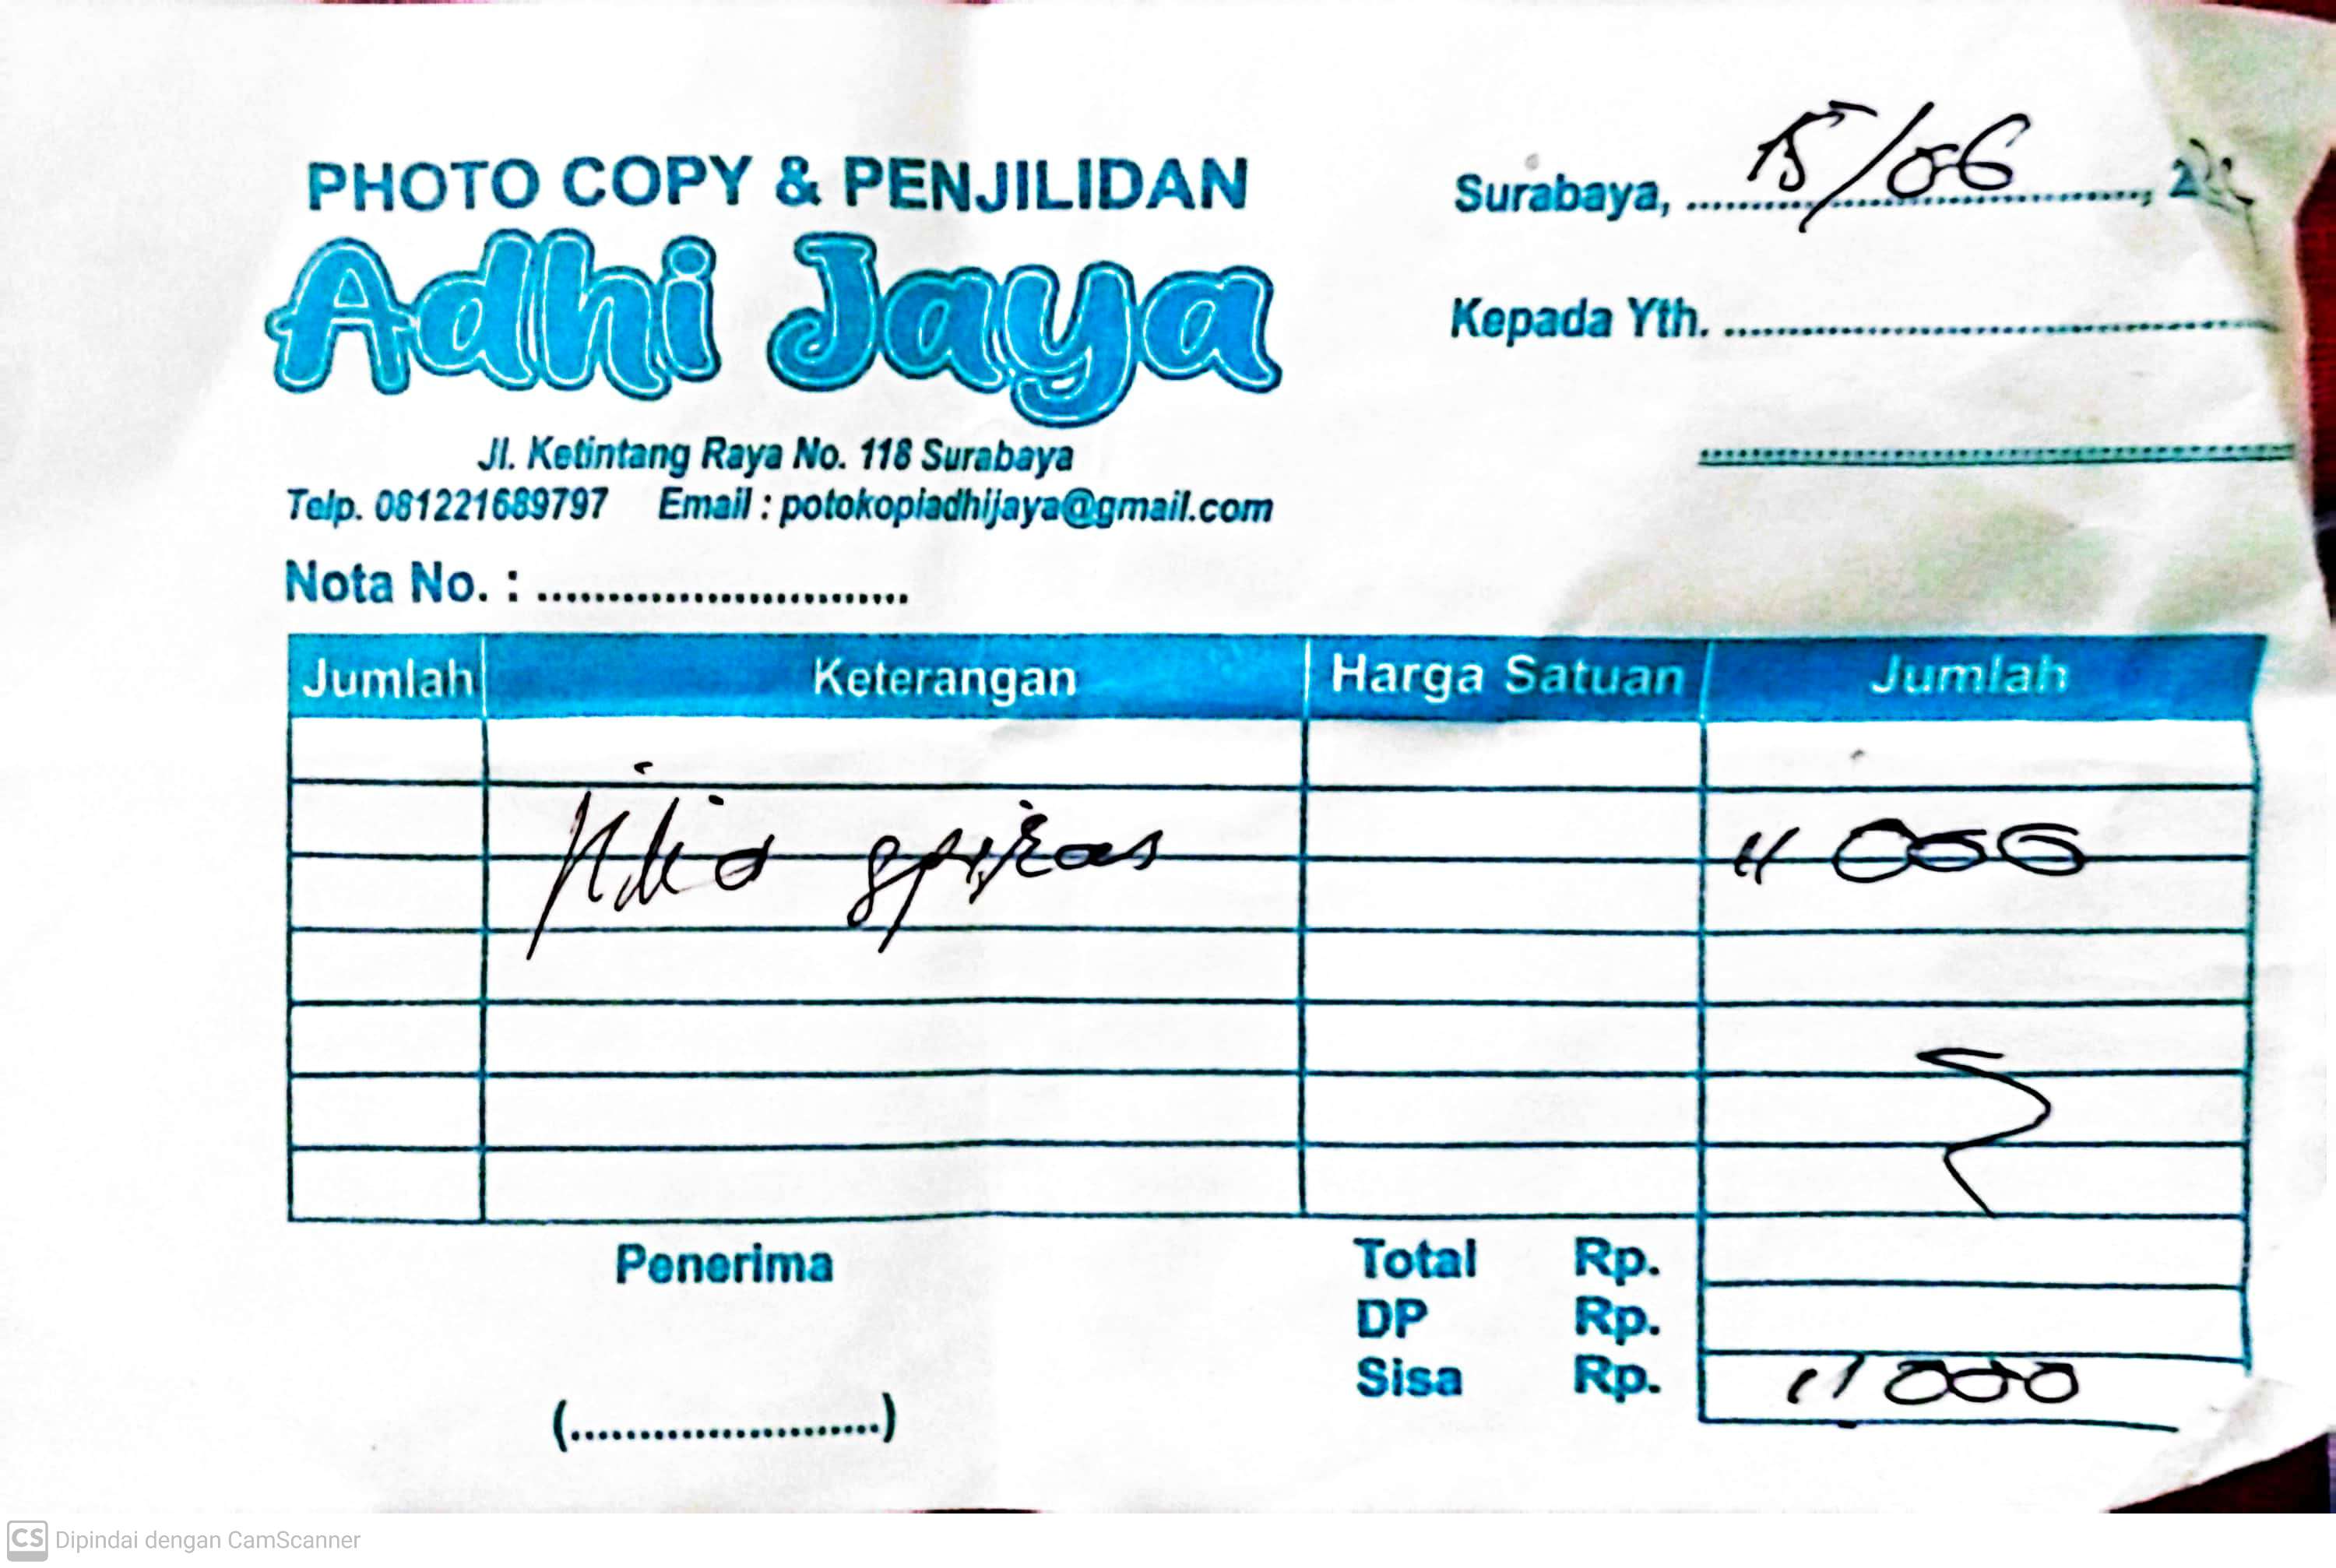 PHOTO COPY & PENJILIDAN
Adhi Jaya
Jl. Ketintang Raya No. 118 Surabaya
Telp. 081221689797 Email : potokopiadhijaya@gmail.com
Surabaya, 15/06
Kepada Yth.
Nota No. :
Jumlah Keterangan Harga Satuan Jumlah
11 000
Total Rp.
DP Rp.
Sisa Rp. 11 000
Penerima
(........................)
CS Dipindai dengan CamScanner